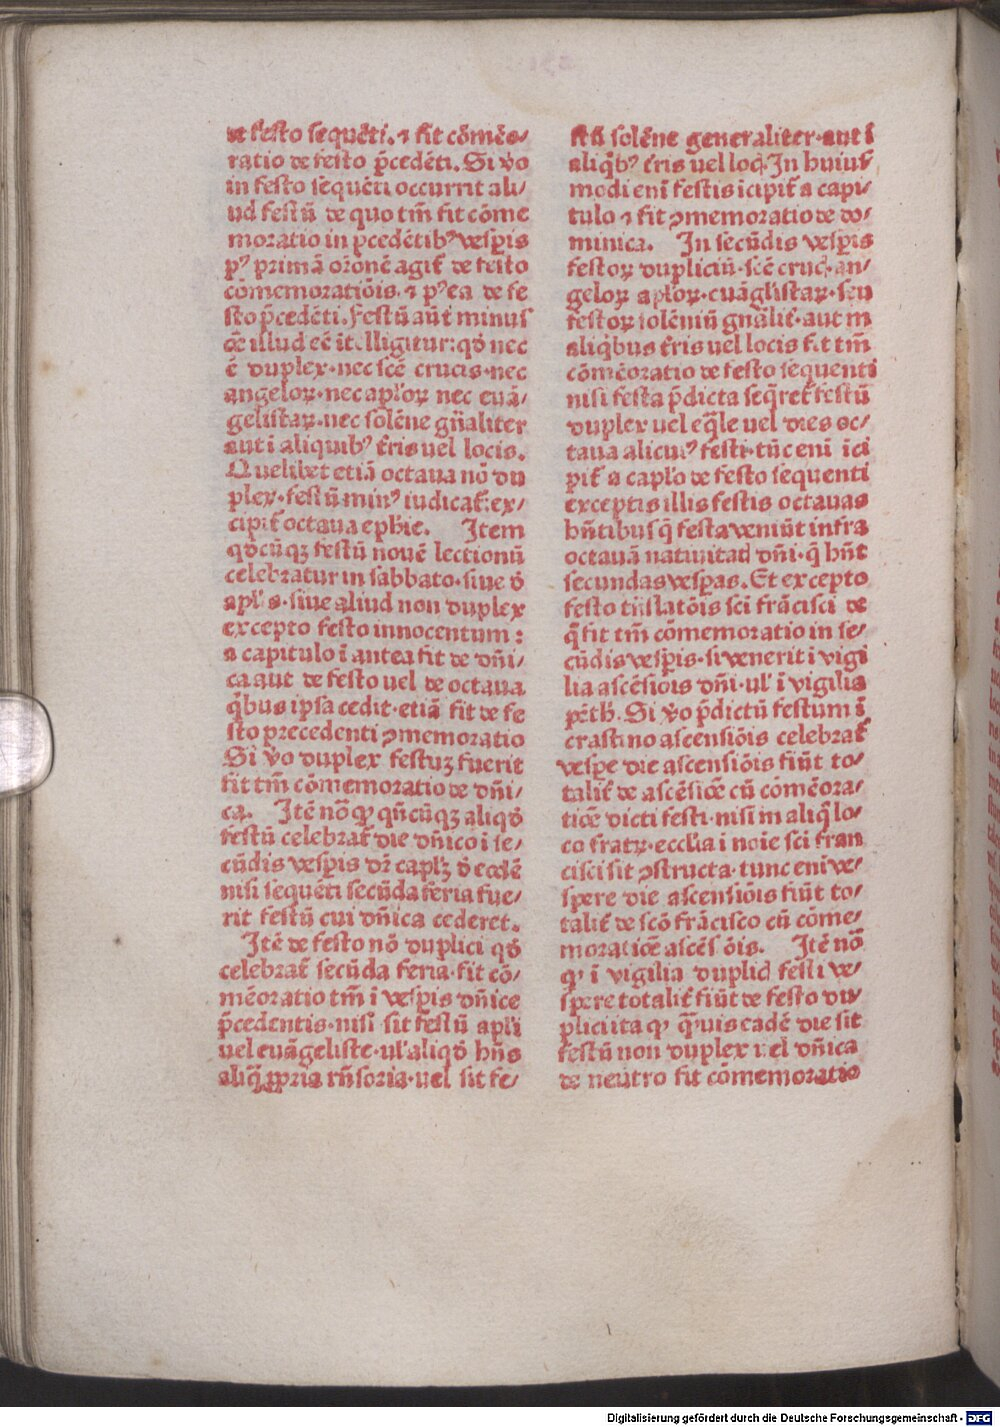 de festo sequēti. ⁊ fit cōmēo⸗
ratio de festo p̄cedēti. Si v̊o
in festo sequēti occurrit ali⸗
ud festū de quo tm̄ fit cōme
moratio in p̄cedētibꝰ vesp̄is
pꝰ primā orōnē agit᷑ de festo
cōmemoratiōis ⁊ pꝰ ea de fe
sto p̄cedēti. Festū aūt minus
illud eē ītelligitur: qd̄ nec
ē duplex · nec scē crucis · nec
angeloꝝ · nec apl̄oꝝ nec euā⸗
gelistaꝝ · nec solēne gn̄aliter
aut ī aliquibꝰ t̄ris uel locis.
Quelibet etiā octaua nō du
plex · festū minꝰ iudicat᷑: ex⸗
cipit᷑ octaua ephie. Item
qd̄cūqꝫ festū nouē lectionū
celebratur in sabbato · siue d̄
apl̄is · siue aliud non duplex
excepto festo innocentum :
a capitulo ī antea fit de dn̄i⸗
ca aut de festo uel de octaua
q̄bus ipsa cedit · etiā fit de fe
sto precedenti ꝯmemoratio
Si v̊o duplex festuꝫ fuerit
fit tm̄ cōmemoratio de dn̄i⸗
ca. Itē nō ꝙ qn̄cūqꝫ aliqd̄
festū celebrat᷑ die dn̄ico ī se⸗
cūdis vesp̄is dr̄ capl̄ꝫ d̄ eodē
nisi sequēti secūda feria fue⸗
rit festū cui dn̄ica cederet.
Itē de festo nō duplici qd̄
celebrat᷑ secūda feria · fit cō⸗
mēoratio tm̄ ī vesp̄is dn̄ice
p̄cedentis · nisi sit festū apl̄i
uel euāgeliste · ul̓ aliqd̄ hn̄s
aliq̄ ꝓpria rn̄soria · uel sit fe⸗
stū solēne generaliter · aut ī
aliq̄bꝰ t̄ris uel locꝭ. In huius
modi enī festis īcipit᷑ a capi⸗
tulo ⁊ fit ꝯmemoratio de do⸗
minica. In secūdis vesp̄is
festoꝝ dupliciū · scē crucꝭ · an⸗
geloꝝ apl̄oꝝ · euāgl̄istaꝝ · seu
festoꝝ solēniū gn̄alit᷑ · aut in
aliq̄bus t̄ris uel locis fit tm̄
cōmēoratio de festo sequenti
nisi festa p̄dicta seq̄ret᷑ festū
duplex uel eq̄le uel dies oc⸗
taua alicuiꝰ festi · tūc enī īci
pit᷑ a capl̄o de festo sequenti
exceptis illis festis octauas
hn̄tibus q̄ festa veniūt infra
octauā natiuitatꝭ dn̄i · q̄ hn̄t
secundas vesp̄as. Et excepto
festo trn̄slatōis sci frācisci de
q̄ fit tm̄ cōmemoratio in se⸗
cūdis vesp̄is · si venerit ī vigi
lia ascēsiōis dn̄i · ul̓ ī vigilia
pēth̄. Si v̊o p̄dictū festum ī
crastino ascensiōis celebrat᷑
vesp̄e die ascensiōis fiūt to⸗
talit᷑ de ascēsiōe cū cōmēora⸗
tiōe dicti festi · nisi in aliq̄ lo⸗
co fratꝝ · eccl̄ia ī noie sci fran
cisci sit ꝯstructa · tunc enī ve⸗
spere die ascensiōis fiūt to⸗
talit᷑ de scō frācisco cū cōme⸗
moratiōe ascēsiōis. Itē nō
ꝙ ī vigilia duplicꝭ festi ve⸗
spere totalit᷑ fiūt de festo du⸗
plici ita ꝙ q̄uis eadē die sit
festū non duplex uel dn̄ica
de neutro fit cōmemoratio
Digitalisierung gefördert durch die Deutsche Forschungsgemeinschaft - DFG